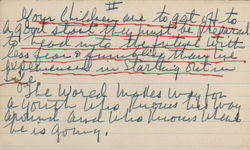 II
Your Children are to get off to
a good start they must be prepared
to head into the future with
less fear & funnoble than we
experienced in starting out in
life.
The world makes way for
a youth who knows his way
around and who knows where
he is going.